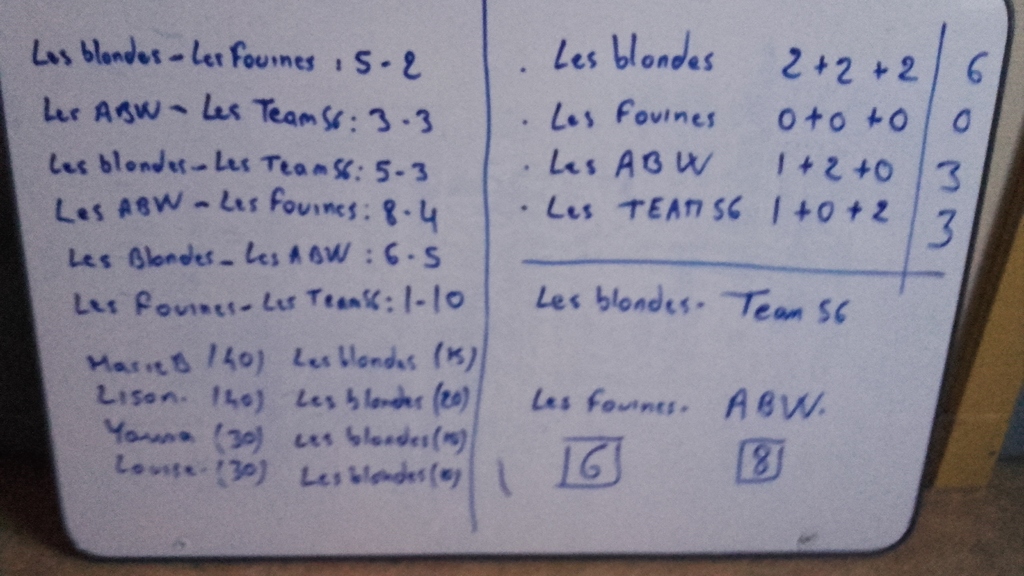 Les blondes - Les Fouines : 5 - 2
Les ABW - Les TeamS6: 3 - 3
Les blondes - Les TeamS6: 5-3
Les ABW - Les Fouines: 8-4
Les Blondes - Les ABW : 6-5
Les Fouines - Les TeamS6: 1-10
Marie B (40) Les blondes (15)
Lison. (40) Les blondes (20)
(30) Les blondes
Louise. (30) Les blondes
. Les blondes 2+2+2 6
. Les Fouines 0+0+0 0
. Les ABW 1+2+0 3
. Les TEAM S6 1+0+2 3
Les blondes - Team S6
Les Fouines - ABW.
6 8